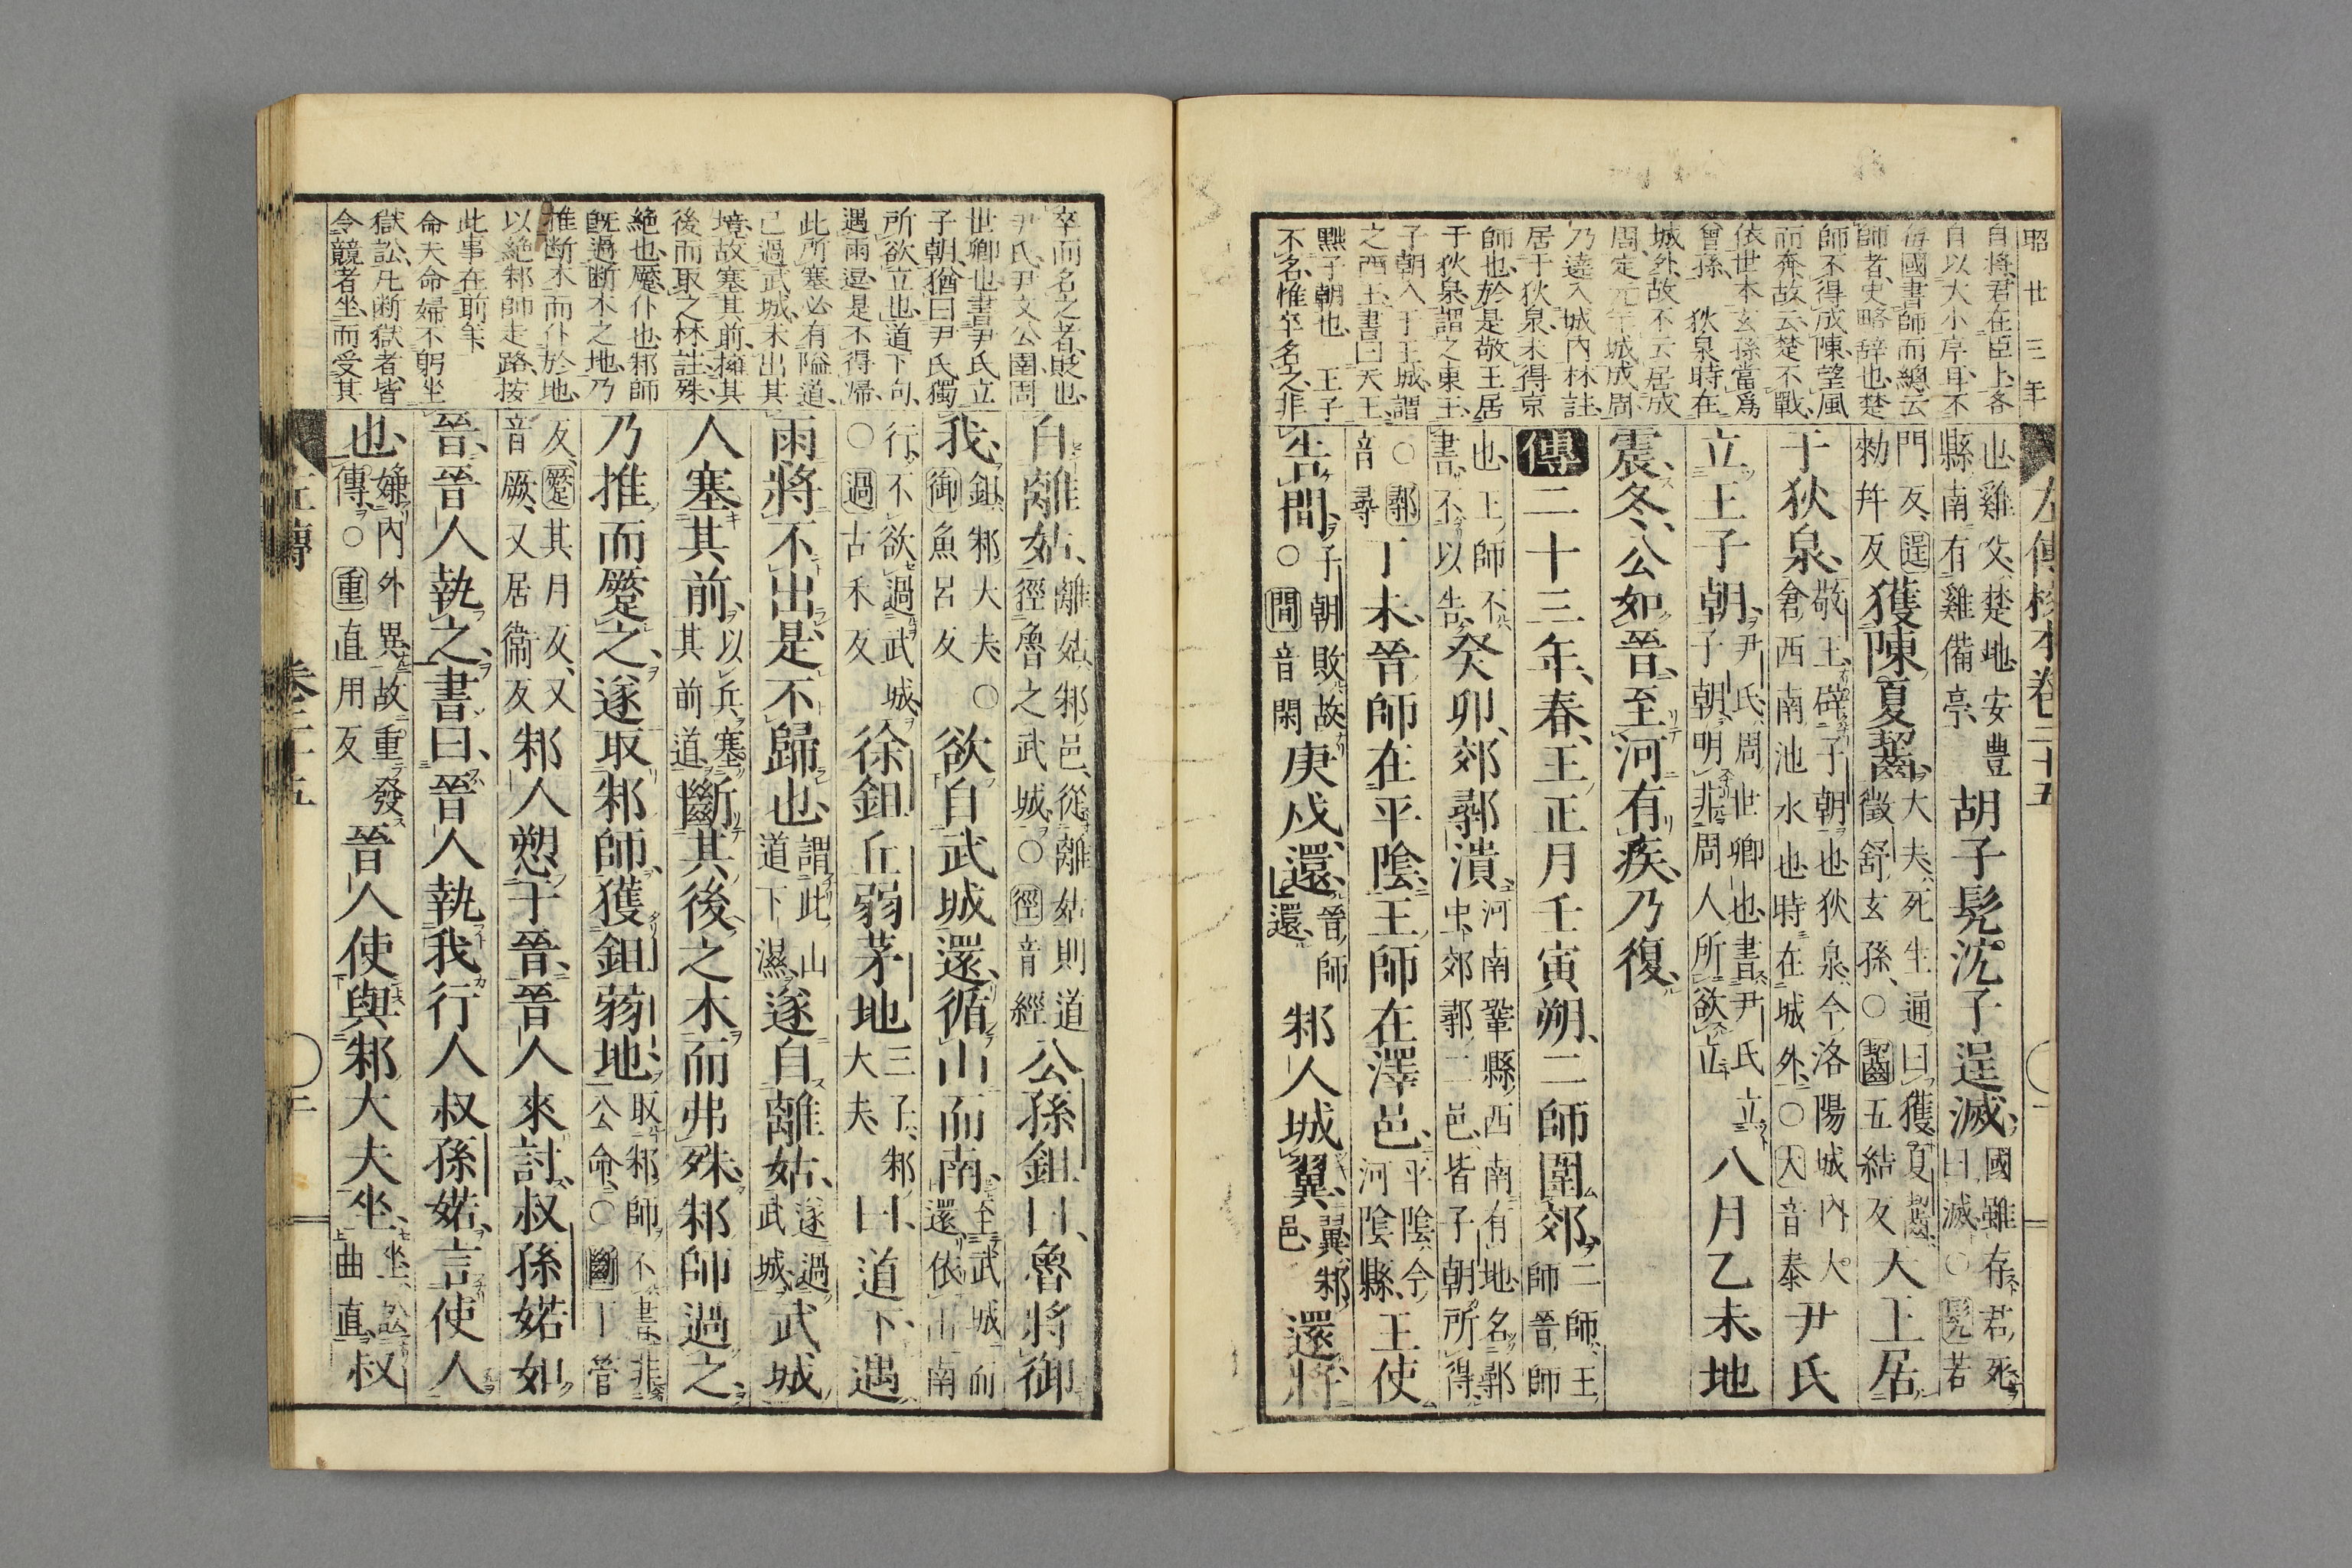 昭廿三年
自將君在臣上各
自以大小序耳不
每國書師而總云
師者史略辞也楚
師不得成陳望風
而奔故云楚不戰
依世本玄孫當爲
曾孫 狄泉時在
城外故不云居成
周定元年城成周
乃遶入城內林註
居于狄泉未得京
師也於是敬王居
于狄泉謂之東王
子朝入于王城謂
之西王書曰天王
黜子朝也 王子
不名惟卒名之非
左傳校本卷二十五
也雞父楚地安豐
縣南有雞備亭
胡子髡沈子逞滅
國雖存君死
曰滅○髡苦
門反逞
勑幷反
獲陳夏齧
大夫死生通曰獲夏齧
徵舒玄孫○齧五結反
天王居
于狄泉
敬王辟子朝也狄泉今洛陽城內大
倉西南池水也時在城外○大音泰
尹氏
立王子朝
尹氏周世卿也書尹氏立
子朝明非周人所欲立
八月乙未地
震冬公如晉至河有疾乃復
傳二十三年春王正月壬寅朔二師圍郊
二師王
師晉師
也王師不
書不以告
癸卯郊鄩潰
河南鞏縣西南有地名鄩
中郊鄩二邑皆子朝所得
○鄩
音尋
丁未晉師在平陰王師在澤邑
平陰今
河陰縣
王使
告間
子朝敗故
○間音閑
庚戌還
晉師
還
邾人城翼
翼邾
邑
還將
卒而名之者貶也
尹氏尹文公圉周
世卿也書尹氏立
子朝猶曰尹氏獨
所欲立也道下句
遇雨還是不得歸
此所塞必有隘道
已過武城未出其
境故塞其前擁其
後而取之林註殊
絶也蹷仆也邾師
既過断木之地乃
推断木而仆於地
以絶邾師走路按
此事在前年
命夫命婦不躬坐
獄訟凡断獄者皆
令競者坐而受其
自離姑
離姑邾邑從離姑則道
徑魯之武城○徑音經
公孫鉏曰魯將御
我
鉏邾大夫○
御魚呂反
欲自武城還循山而南
至武城而
還依山南
行不欲過武城
○過古禾反
徐鉏丘弱茅地
三子邾
大夫
曰道下遇
雨將不出是不歸也
謂此山
道下濕
遂自離姑
遂過
武城
武城
人塞其前
以兵塞
其前道
斷其後之木而弗殊邾師過之
乃推而蹷之遂取邾師獲鉏弱地
取邾師不書非
公命○斷丁管
反蹷其月反又
音厥又居衞反
邾人愬于晉晉人來討叔孫婼如
晉晉人執之書曰晉人執我行人叔孫婼言使人
也
嫌內外異故重發
傳○重直用反
晉人使與邾大夫坐
坐訟
曲直
叔
左傳 卷二十五 ○二